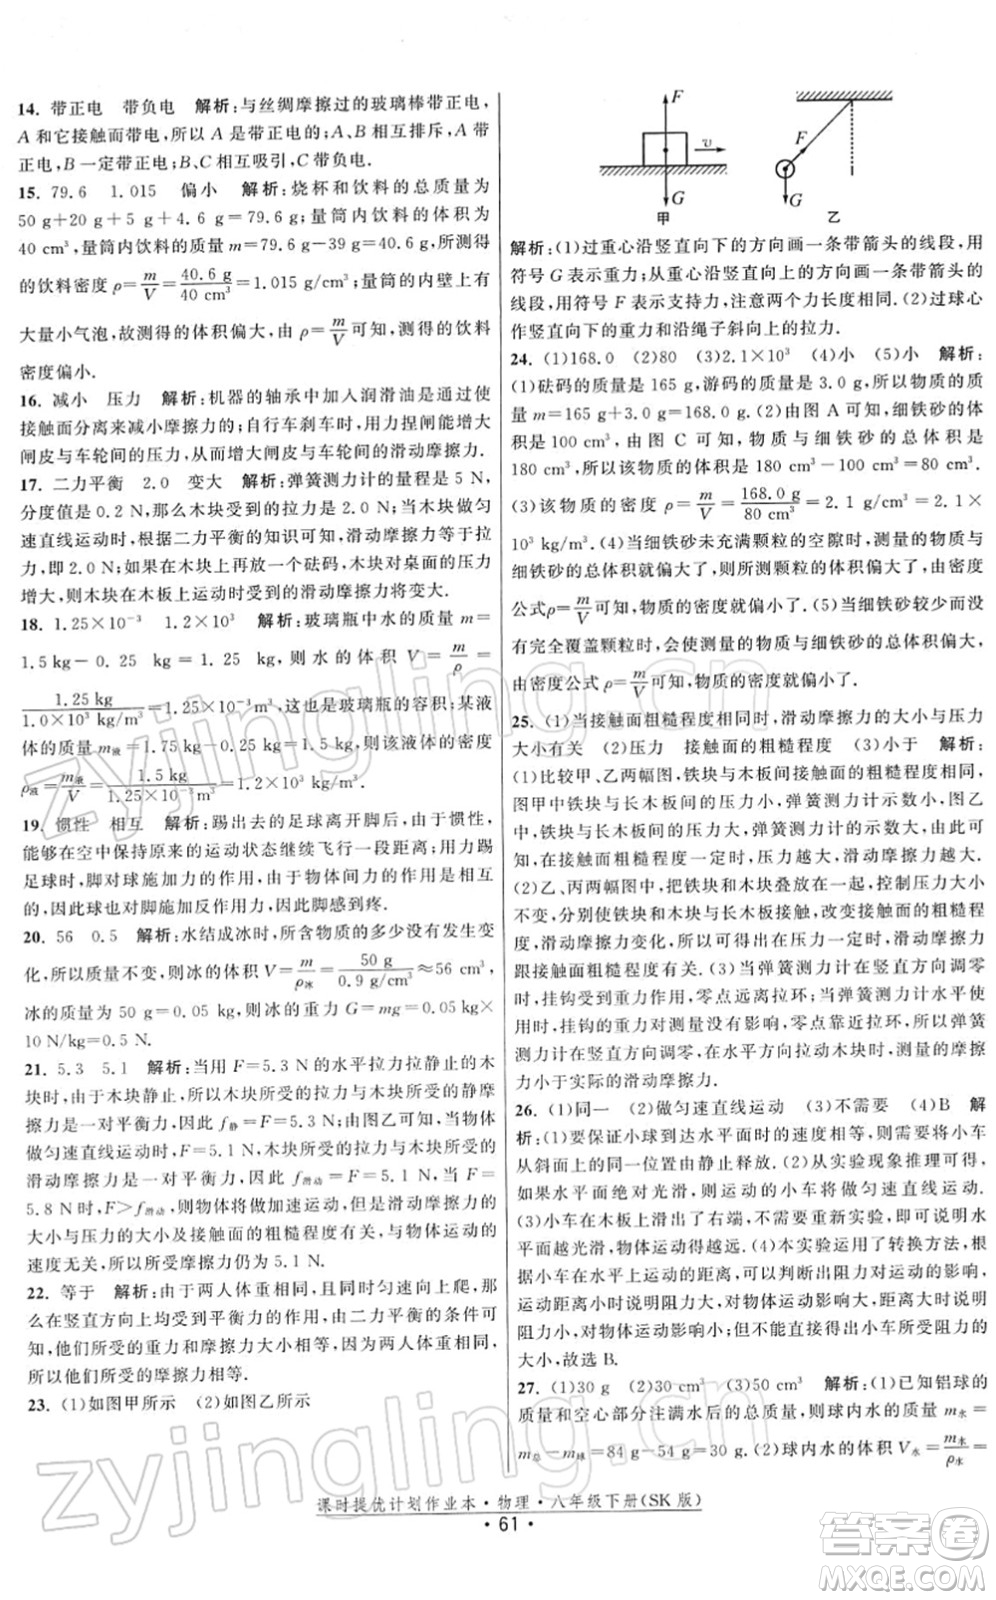 14. 带正电 带负电 解析:与丝绸摩擦过的玻璃棒带正电,
A 和它接触而带电,所以 A 是带正电的;A、B 相互排斥,A 带
正电,B 一定带正电;B、C 相互吸引,C 带负电.
15. 79.6 1.015 偏小 解析:烧杯和饮料的总质量为
50 g+20 g+5 g+4.6 g=79.6 g;量筒内饮料的体积为
40 cm³,量筒内饮料的质量 m=79.6 g-39 g=40.6 g,测得
的饮料密度 ρ=m/V=40.6 g/40 cm³=1.015 g/cm³;饮料内部有
大量小气泡,故测得的体积偏大,由 ρ=m/V可知,测得的饮料
密度偏小.
16. 减小 压力 解析:机器的轴承中加入润滑油是通过使
接触面分离来减小摩擦力的;自行车刹车时,用力捏闸增大
闸皮与车轮间的压力,从而增大闸皮与车轮间的滑动摩擦力.
17. 二力平衡 2.0 变大 解析:弹簧测力计的量程是 5 N,
分度值是 0.2 N,那么木块受到的拉力是 2.0 N;当木块做匀
速直线运动时,根据二力平衡的知识可知,滑动摩擦力等于拉
力,即 2.0 N;如果在木块上再放一个砝码,木块对桌面的压力
增大,则木块在木板上运动时受到的滑动摩擦力变大.
18. 1.25×10⁻³ 1.2×10³ 解析:玻璃瓶中水的质量 m=
1.5 kg-0.25 kg=1.25 kg,则水的体积 V=m/ρ=
1.25 kg/1.0×10³ kg/m³=1.25×10⁻³m³,这也是玻璃瓶的容积;某液
体的质量 m液=1.75 kg-0.25 kg=1.5 kg,则该液体的密度
ρ液=m液/V=1.5 kg/1.25×10⁻³m³=1.2×10³ kg/m³.
19. 惯性 相互 解析:踢出去的足球离开脚后,由于惯性,
能够在空中保持原来的运动状态继续飞行一段距离;用力踢
足球时,脚对球施加力的作用,由于物体间力的作用是相互
的,因此球也对脚施加反作用力,因此脚感到疼.
20. 56 0.5 解析:水结成冰时,所含物质的多少没有发生变
化,所以质量不变,则冰的体积 V=m/ρ冰=50 g/0.9 g/cm³≈56 cm³,
冰的质量为 50 g=0.05 kg,则冰的重力 G=mg=0.05 kg×
10 N/kg=0.5 N.
21. 5.3 5.1 解析:当用 F=5.3 N的水平拉力拉静止的木
块时,由于木块静止,所以木块所受的拉力与木块所受的静摩
擦力是一对平衡力,因此 f静=F=5.3 N;由图乙可知,当物体
做匀速直线运动时,F=5.1 N,木块所受的拉力与木块所受的
滑动摩擦力是一对平衡力,因此 f滑动=F=5.1 N;当 F=
5.8 N时,F>f滑动,则物体将做加速运动,但是滑动摩擦力的
大小与压力的大小及接触面的粗糙程度有关,与物体运动的
速度无关,所以所受摩擦力仍为 5.1 N.
22. 等于 解析:由于两人体重相同,且同时匀速向上爬,那
么在竖直方向上均受到平衡力的作用,由二力平衡的条件可
知,他们的重力和摩擦力大小相等.因为两人体重相同,
所以他们所受的摩擦力相等.
23. (1)如图甲所示 (2)如图乙所示
F
v
G
甲
F
G
乙
解析:(1)过重心沿竖直向下的方向画一条带箭头的线段,用
符号 G 表示重力;从重心沿竖直向上的方向画一条带箭头的
线段,用符号 F 表示支持力,注意两个力长度相同.(2)过球心
作竖直向下的重力和沿绳子斜向上的拉力.
24. (1)168.0 (2)80 (3)2.1×10³ (4)小 (5)小 解析:
(1)砝码的质量是 165 g,游码的质量是 3 g,所以该物质的质
量 m=165 g+3 g=168.0 g.(2)由图 A 可知,细铁砂的体
积是 100 cm³,由图 C 可知,物质与细铁砂的总体积是
180 cm³,所以该物质的体积是 180 cm³-100 cm³=80 cm³.
(3)该物质的密度 ρ=m/V=168.0 g/80 cm³=2.1 g/cm³=2.1×
10³ kg/m³.(4)当细铁砂未充满颗粒的空隙时,测量的物质与
细铁砂的总体积就偏大了,即测量的物质的体积偏大,由密度
公式ρ=m/V可知,密度就偏小了.(5)当细铁砂较少而导致没
有完全覆盖颗粒时,会使测量的物质与细铁砂的总体积偏大,
由密度公式 ρ=m/V可知,物质的密度就偏小了.
25. (1)当接触面粗糙程度相同时,滑动摩擦力的大小与压力
大小有关 (2)压力 接触面的粗糙程度 (3)小于 解析:
(1)比较甲、乙两幅图,铁块与木板间接触面的粗糙程度相同,
图甲中铁块与长木板间的压力小,弹簧测力计示数小,图乙
中铁块与长木板间的压力大,弹簧测力计的示数大,由此可知
如果接触面粗糙程度一定时,压力越大,滑动摩擦力越大.
(2)乙、丙两幅图,把铁块和木块叠放在一起,控制压力大小
不变,分别使铁块和木块与长木板接触,改变接触面的粗糙程
度,滑动摩擦力变化,所以可得出在压力一定时,滑动摩擦力
跟接触面粗糙程度有关.(3)当弹簧测力计在竖直方向调零
时,挂钩受到重力的作用,零点远离拉环;当弹簧测力计水平使
用时,挂钩的重力对测量没有影响,零点靠近拉环,所以,弹簧
测力计在竖直方向调零,在水平方向拉动木块时,测量的摩擦
力小于实际的滑动摩擦力.
26. (1)同一 (2)做匀速直线运动 (3)不需要 (4)B 解
析:(1)要保证小球到达水平面时的速度相等,需要将小车
从斜面上的同一位置由静止释放.(2)从实验现象推理可得,
如果水平面绝对光滑,则运动的小车将做匀速直线运动.
(3)小车在木板上滑出了右端,不需要重新实验,即可得出水
平面越光滑,小车运动得越远.(4)本实验运用了转换方法,根
据小车在水平面上运动的距离,可以判断出阻力对物体运动
的影响,运动距离小说明阻力大,对物体运动的影响大,即根
据小车在不同水平面上运动的距离来判断小车所受阻力
的大小,故选 B.
27. (1)30 g (2)30 cm³ (3)50 cm³ 解析:(1)已知铝球的
质量和空心部分注满水后的总质量,则球内水的质量 m水=
m总-m球=84 g-54 g=30 g.(2)球内水的体积 V水=m水/ρ水=
课时提优计划作业本·物理·八年级下册(SK 版)
·61·
zyjingling.cn
zyjingling.cn
答案圈
MXQE.COM